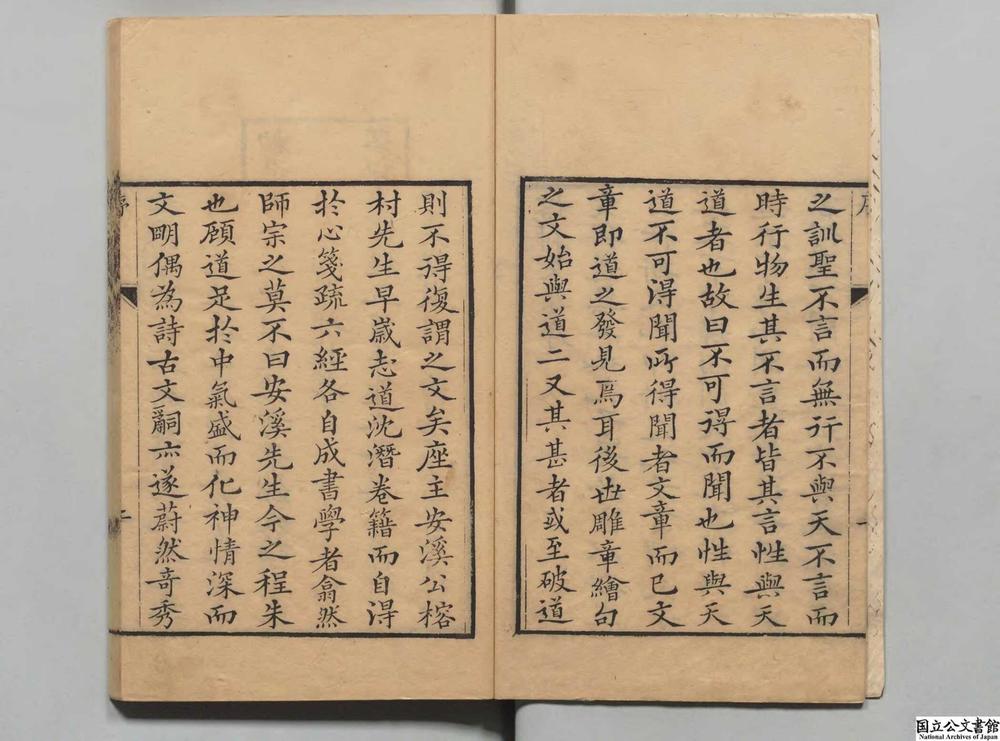 之訓聖不言而無行不與天不言而
時行物生其不言者皆其言性與天
道者也故曰不可得而聞也性與天
道不可得聞所得聞者文章而已文
章即道之發見焉耳後世雕章繪句
之文始與道二又其甚者或至破道
則不得復謂之文矣座主安溪公榕
村先生早歲志道沈潛卷籍而自得
於心箋疏六經各自成書學者翕然
師宗之莫不曰安溪先生今之程朱
也顧道足於中氣盛而化神情深而
文明偶為詩古文嗣亦遂蔚然奇秀
国立公文書館
National Archives of Japan